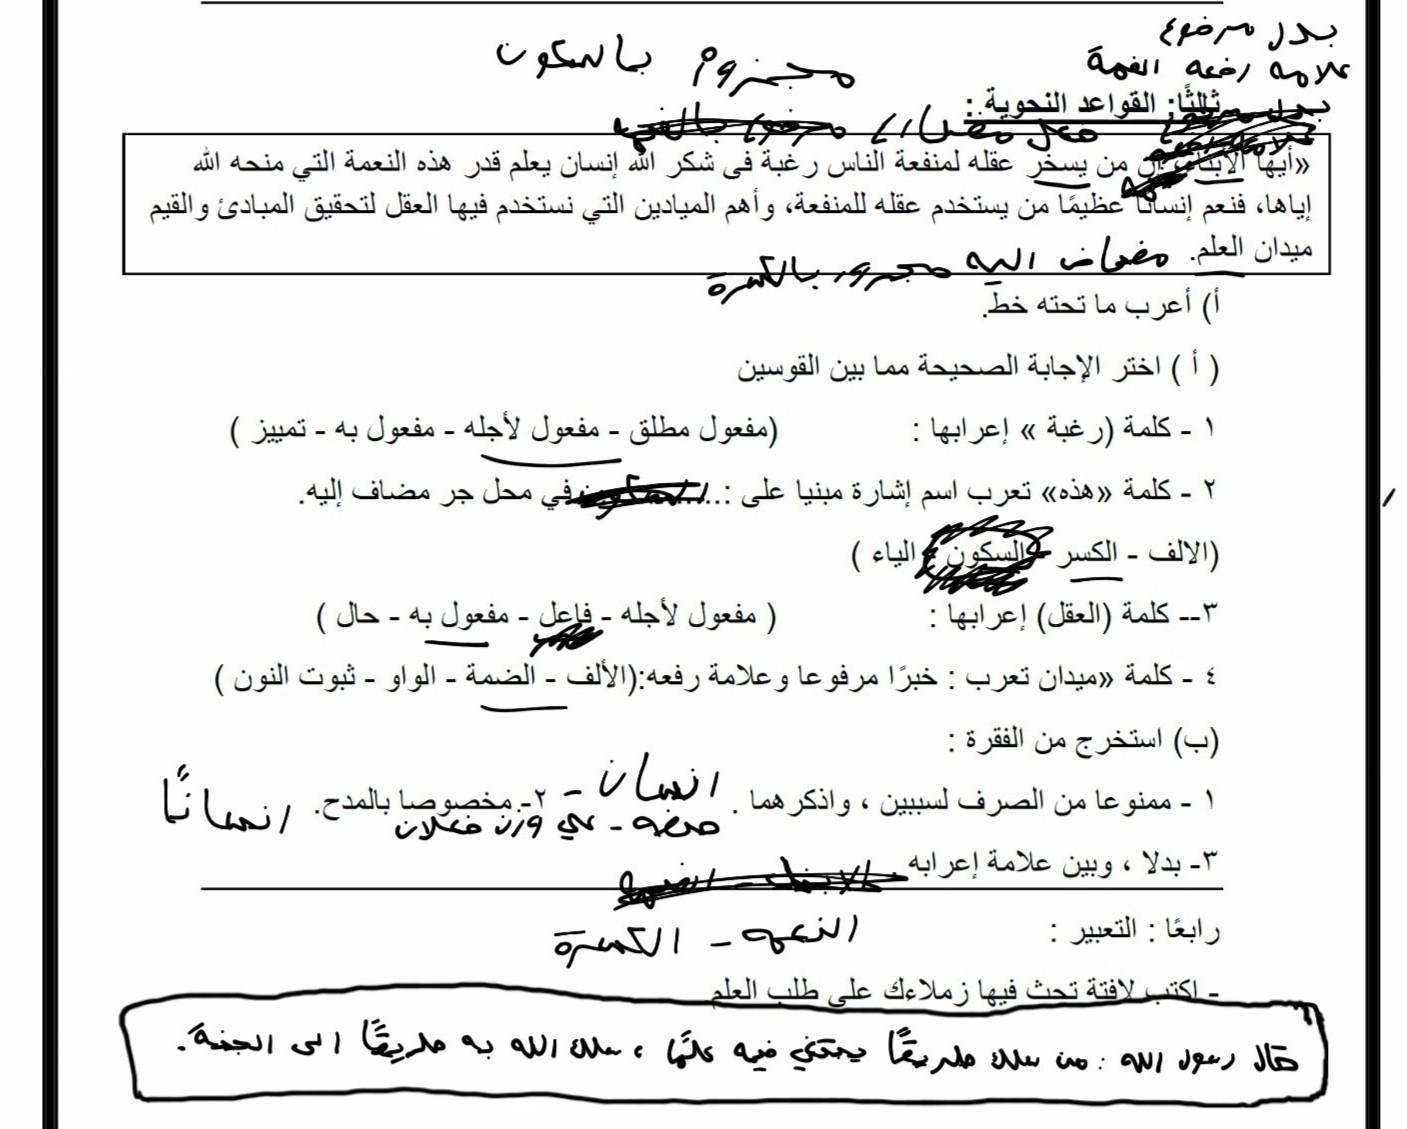 بدل مرفوع
علامه رفعه الضمة
مجزوم بالسكون
ثالثًا: القواعد النحوية :
فعل مضارع
«أيها الأبناء، إن من يسخر عقله لمنفعة الناس رغبة فى شكر الله إنسان يعلم قدر هذه النعمة التي منحه الله
إياها، فنعم إنسانًا عظيمًا من يستخدم عقله للمنفعة، وأهم الميادين التي نستخدم فيها العقل لتحقيق المبادئ والقيم
ميدان العلم.
مضاف اليه مجرور بالكسرة
أ) أعرب ما تحته خط.
( أ ) اختر الإجابة الصحيحة مما بين القوسين
١ - كلمة (رغبة » إعرابها : (مفعول مطلق - مفعول لأجله - مفعول به - تمييز )
٢ - كلمة «هذه» تعرب اسم إشارة مبنيا على :..... في محل جر مضاف إليه.
(الالف - الكسر - السكون - الياء )
٣-- كلمة (العقل) إعرابها : ( مفعول لأجله - فاعل - مفعول به - حال )
٤ - كلمة «ميدان تعرب : خبرًا مرفوعا وعلامة رفعه:(الألف - الضمة - الواو - ثبوت النون )
(ب) استخرج من الفقرة :
١ - ممنوعا من الصرف لسببين ، واذكرهما . انسان - ٢-. مخصوصا بالمدح. انسانًا
صفه - علي وزن فعلان
٣- بدلا ، وبين علامة إعرابه
النعمه - الكسرة
رابعًا : التعبير :
- اكتب لافتة تحث فيها زملاءك على طلب العلم
قال رسول الله : من سلك طريقًا يبتغي فيه علمًا ، سلك الله به طريقًا الى الجنة.